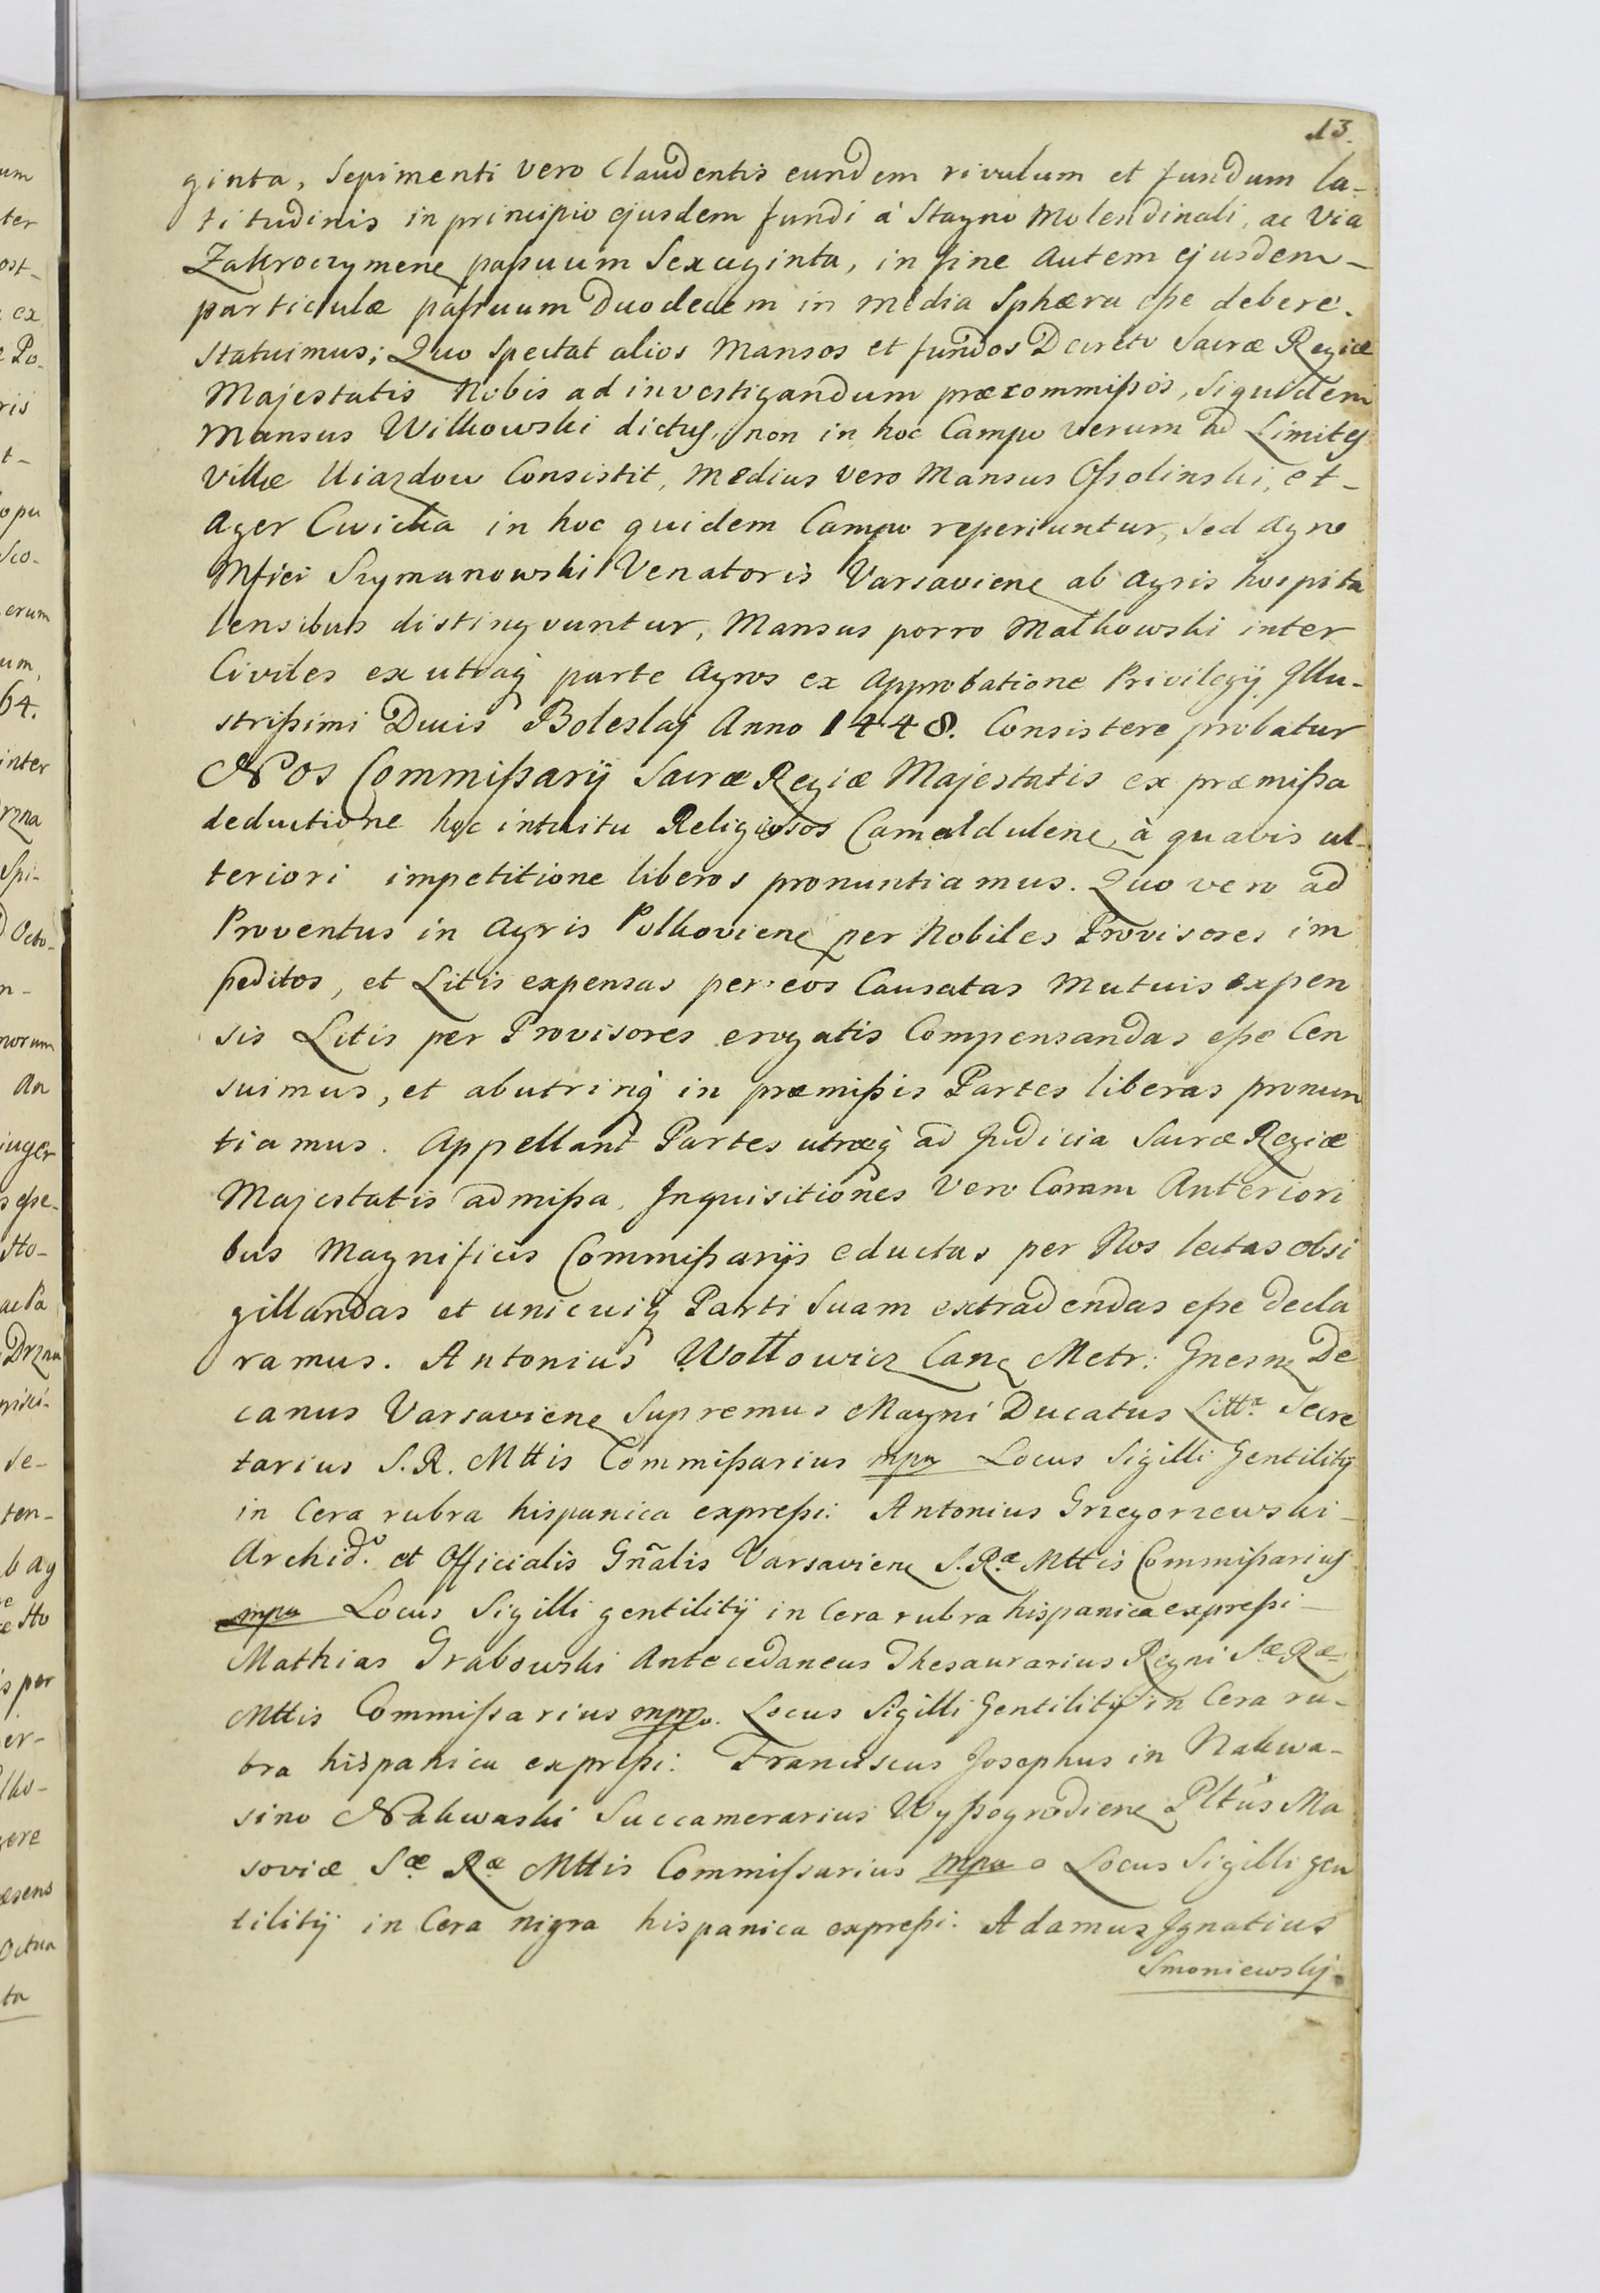 13.
ginta, Sepimenti vero Claudentis eundem rivulum et fundum la-
titudinis in principio ejusdem fundi à Stagno Molendinali, ac Via
Zakroczymene paßuum Sexaginta, in fine Autem ejusdem
particulæ paßuum Duodecem in media Sphæra eße debere
statuimus; Quo Spectat alios Mansos et fundos Decreto Sacræ Regiæ
Majestatis Nobis ad investigandum præcommißos, Siquidem
Mansus Wilkowski dictus, non in hoc Campo verum ad Limites
Villæ Uiazdow Consistit, Medius vero Mansus Oßolinski, et
Ager Cwicka in hoc quidem Campo reperiuntur, Sed Agro
Mfici Szymanowski Venatoris Varsaviene ab Agris hospita
lensibus distingvuntur, Mansus porro Malkowski inter
Civiles ex utraq parte Agros ex Approbatione Privilegij Illu-
strißimi Ducis Boleslaj Anno 1448. Consistere probatur
Nos Commißarij Sacræ Regiæ Majestatis ex præmißa
deductione hoc intuitu Religiosos Camaldulene à quavis ul-
teriori impetitione liberos pronuntiamus. Quo vero ad
Proventus in Agris Polkoviene per Nobiles Provisores im
peditos, et Litis expensas per eos Causatas Mutuis expen
sis Litis per Provisores erogatis Compensandas eße Cen
suimus, et abutrinq in præmißis Partes liberas pronun
tiamus. Appellant Partes utræq ad Judicia Sacræ Regiæ
Majestatis admißa, Inquisitiones Vero Coram Anteriori
bus Magnificis Commißarijs eductas per Nos lectas obsi
gillandas et unicuiq Parti Suam extradendas eße decla
ramus. Antonius Wottowicz Cane Metr: Gnesne De
canus Varsaviene Supremus Magni Ducatus Litt.æ Secre
tarius S. R. Mttis Commißarius mpa Locus Sigilli Gentilitij
in Cera rubra hispanica expreßi: Antonius Grzegorzewski
Archid.o et Officialis Gñalis Varsaviene S. Ræ Mttis Commißarius
mpa Locus Sigilli gentilitij in Cera rubra hispanica expreßi
Mathias Grabowski Antecedaneus Thesaurarius Regni Sæ Ræ
Mttis Commißarius mppa. Locus Sigilli Gentilitij in Cera ru-
bra hispanica expreßi: Franciscus Josephus in Nakwa-
sino Nakwaski Succamerarius Wyßogrodiene Pltus Ma
soviæ Sæ Ræ Mttis Commißarius mpa Locus Sigilli gen
tilitij in Cera nigra hispanica expreßi: Adamus Ignatius
Smoniewskj.